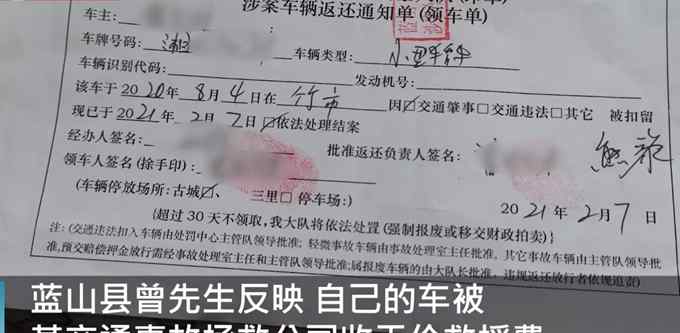 涉案车辆返还通知单(领车单)
车主:
车牌号码: 湘 车辆类型: 小型
车辆识别代码: 发动机号:
该车于2020年8月4日在竹市因☑交通肇事□交通违法□其它 被扣留
现已于2021年2月7日☑依法处理结案
经办人签名: 批准返还负责人签名:
领车人签名(捺手印):
(车辆停放场所:古城☑、 三里□ 停车场;) 2021年2月7日
{超过30天不领取,我大队将依法处置(强制报废或移交财政拍卖)}
注:(交通违法扣入车辆由处罚中心主管队领导批准;轻微事故车辆由事故处理室主任批准,其它事故车辆由主管队领导批
准,预交赔偿押金放行需经事故处理室主任和主管队领导批准;属报废车辆的由大队长批准,违规返还放行者依规追责)
蓝山县曾先生反映 自己的车被
某交通事故拯救公司收天价救援费